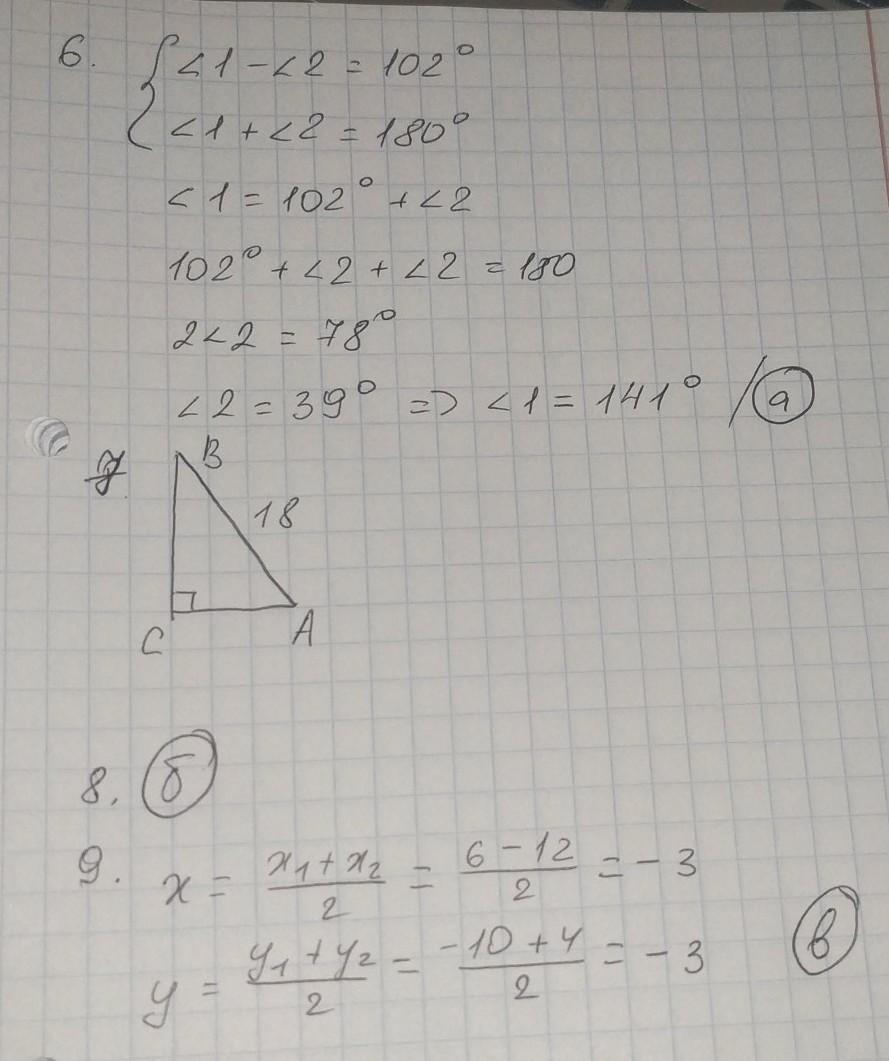 6. { <1 - <2 = 102°
<1 + <2 = 180°
<1 = 102° + <2
102° + <2 + <2 = 180
2<2 = 78°
<2 = 39° => <1 = 141° / а
7
B
18
C
A
8. б
9. x = (x₁ + x₂)/2 = (6 - 12)/2 = -3
y = (y₁ + y₂)/2 = (-10 + 4)/2 = -3 в